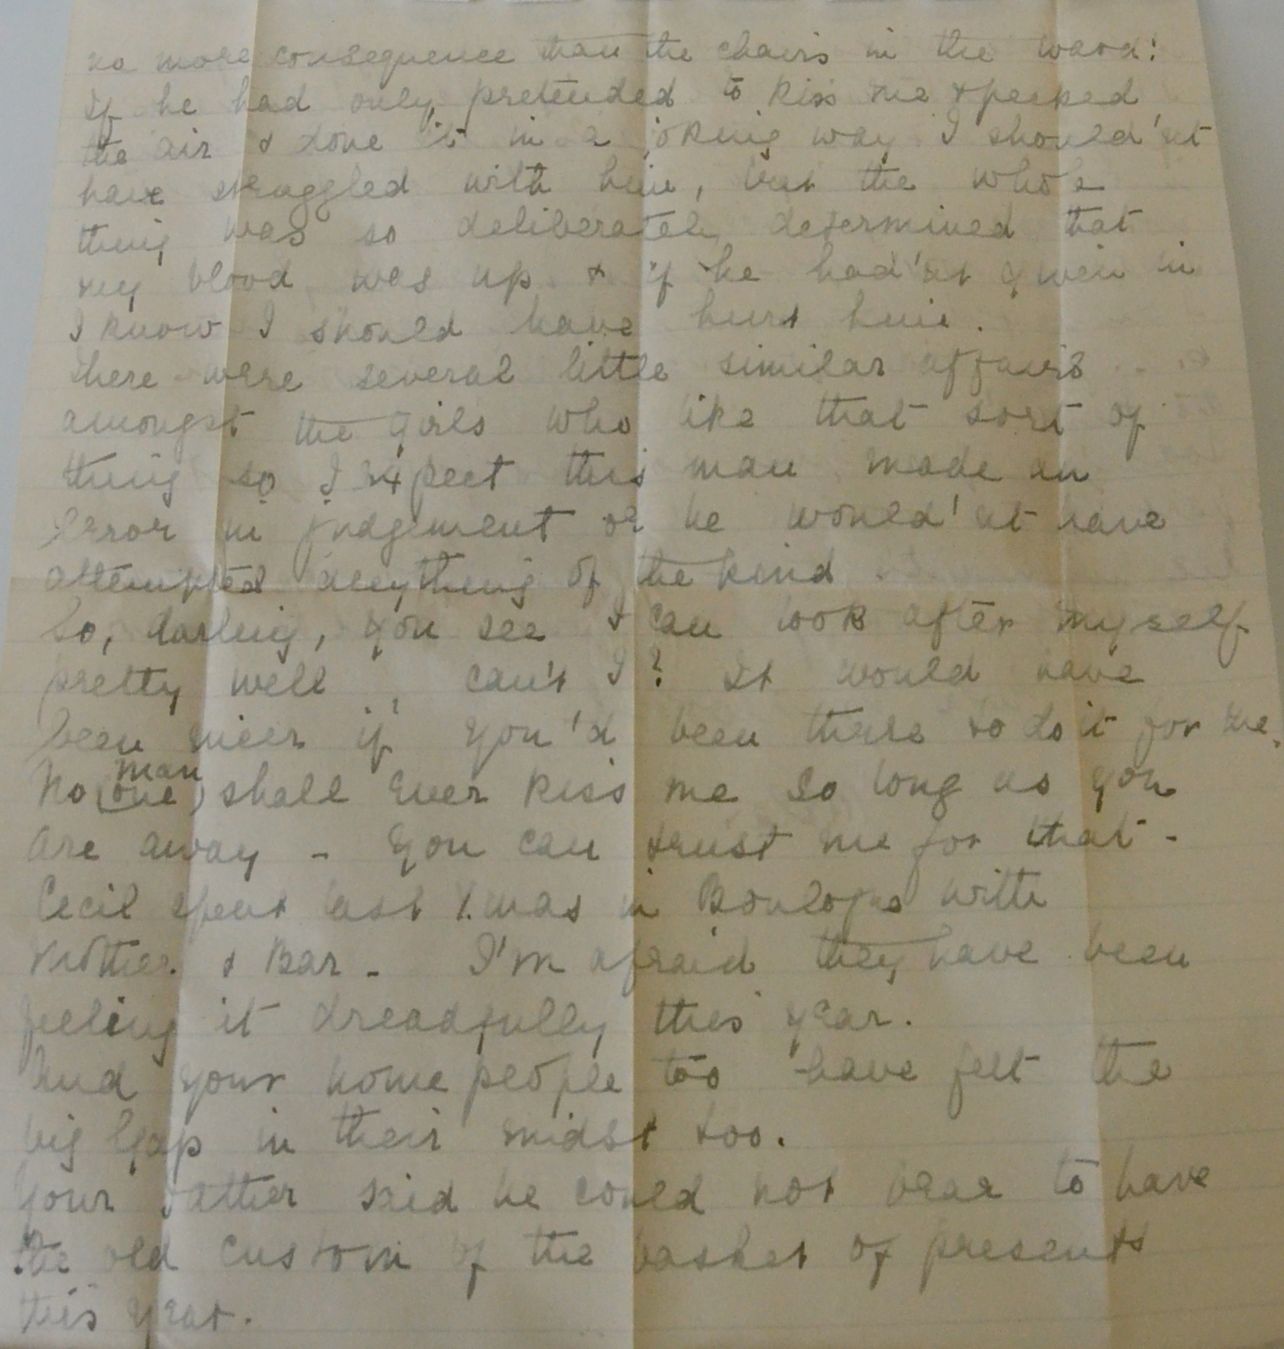 no more consequence than the chairs in the ward:
if he had only pretended to kiss me & pecked
the air & done it in a joking way I should'nt
have struggled with him, but the whole
thing was so deliberately determined that
my blood was up & if he had'nt given in
I know I should have hurt him.
There were several little similar affairs
amongst the girls who like that sort of
thing so I expect this man made an
error in judgement or he would'nt have
attempted anything of the kind.
So, darling, you see I can look after myself
pretty well, can't I? It would have
been nicer if you'd been there to do it for me.
No (one) man shall ever kiss me so long as you
are away - you can trust me for that -
Cecil spent last Xmas in Boulogne with
Mother & Bar - I'm afraid they have been
feeling it dreadfully this year.
And your home people too have felt the
big gap in their midst too.
Your Father said he could not bear to have
the old custom of the basket of presents
this year.